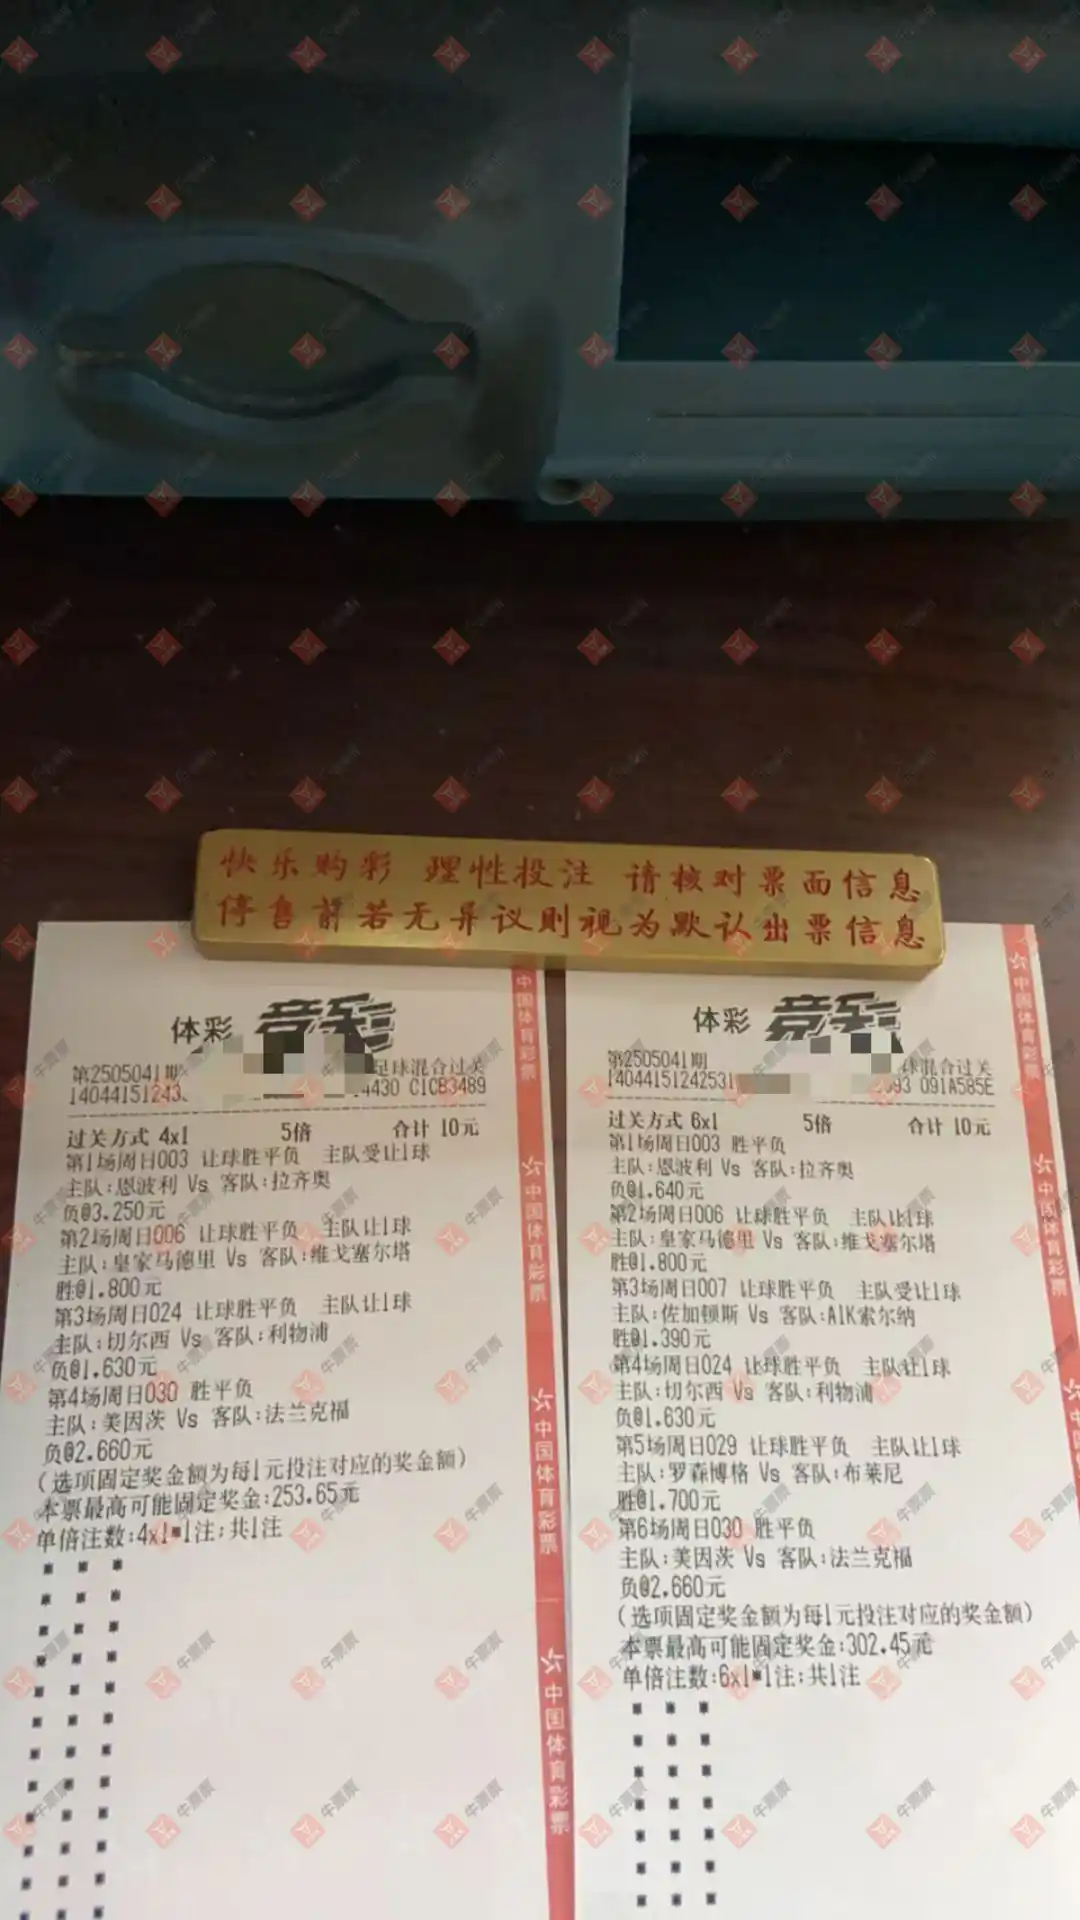 快乐购彩 理性投注 请核对票面信息
停售前若无异议则视为默认出票信息
体彩 竞彩
第2505041期 足球混合过关
1404415124 4430 C1CB3489
过关方式 4x1 5倍 合计 10元
第1场周日003 让球胜平负 主队受让1球
主队:恩波利 Vs 客队:拉齐奥
负@3.250元
第2场周日006 让球胜平负 主队让1球
主队:皇家马德里 Vs 客队:维戈塞尔塔
胜@1.800元
第3场周日024 让球胜平负 主队让1球
主队:切尔西 Vs 客队:利物浦
负@1.630元
第4场周日030 胜平负
主队:美因茨 Vs 客队:法兰克福
负@2.660元
(选项固定奖金额为每1元投注对应的奖金额)
本票最高可能固定奖金:253.65元
单倍注数:4x1*1注;共1注
中国体育彩票
中国体育彩票
中国体育彩票
中国体育彩票
体彩 竞彩
第2505041期 球混合过关
14044151242531 093 091A585E
过关方式 6x1 5倍 合计 10元
第1场周日003 胜平负
主队:恩波利 Vs 客队:拉齐奥
负@1.640元
第2场周日006 让球胜平负 主队让1球
主队:皇家马德里 Vs 客队:维戈塞尔塔
胜@1.800元
第3场周日007 让球胜平负 主队受让1球
主队:佐加顿斯 Vs 客队:AIK索尔纳
胜@1.390元
第4场周日024 让球胜平负 主队让1球
主队:切尔西 Vs 客队:利物浦
负@1.630元
第5场周日029 让球胜平负 主队让1球
主队:罗森博格 Vs 客队:布莱尼
胜@1.700元
第6场周日030 胜平负
主队:美因茨 Vs 客队:法兰克福
负@2.660元
(选项固定奖金额为每1元投注对应的奖金额)
本票最高可能固定奖金:302.45元
单倍注数:6x1*1注;共1注
中国体育彩票
中国体育彩票
牛票票